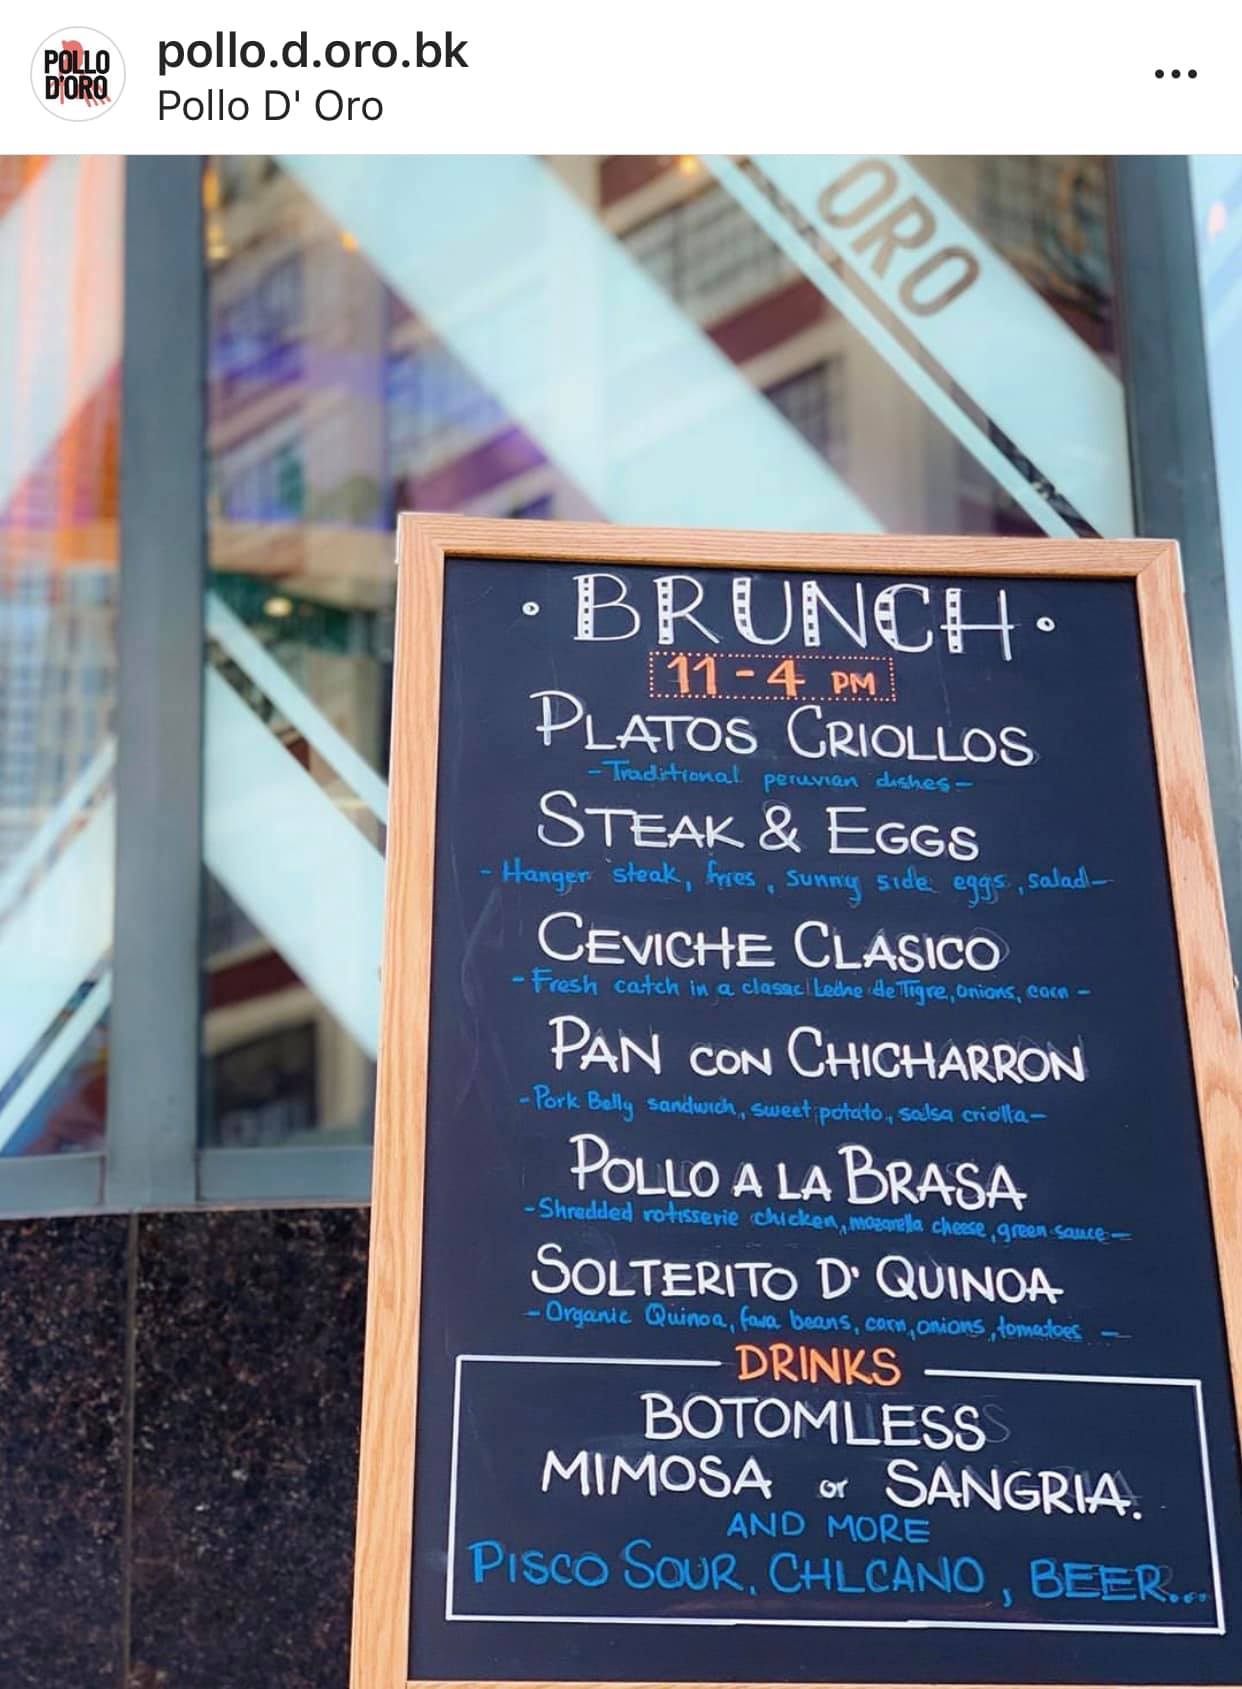 POLLO
D'ORO
pollo.d.oro.bk
Pollo D' Oro
ORO
BRUNCH
11-4 PM
PLATOS CRIOLLOS
-Traditional peruvian dishes-
STEAK & EGGS
- Hanger steak, fries, sunny side eggs, salad-
CEVICHE CLASICO
-Fresh catch in a classc Leche de Tigre, onions, corn -
PAN CON CHICHARRON
-Pork Belly sandwich, sweet potato, salsa criolla-
POLLO A LA BRASA
-Shredded rotisserie chicken, mozarella cheese, green sauce-
SOLTERITO D' QUINOA
-Organic Quinoa, fava beans, corn, onions, tomatoes -
DRINKS
BOTOMLESS
MIMOSA or SANGRIA.
AND MORE
PISCO SOUR, CHLCANO, BEER...